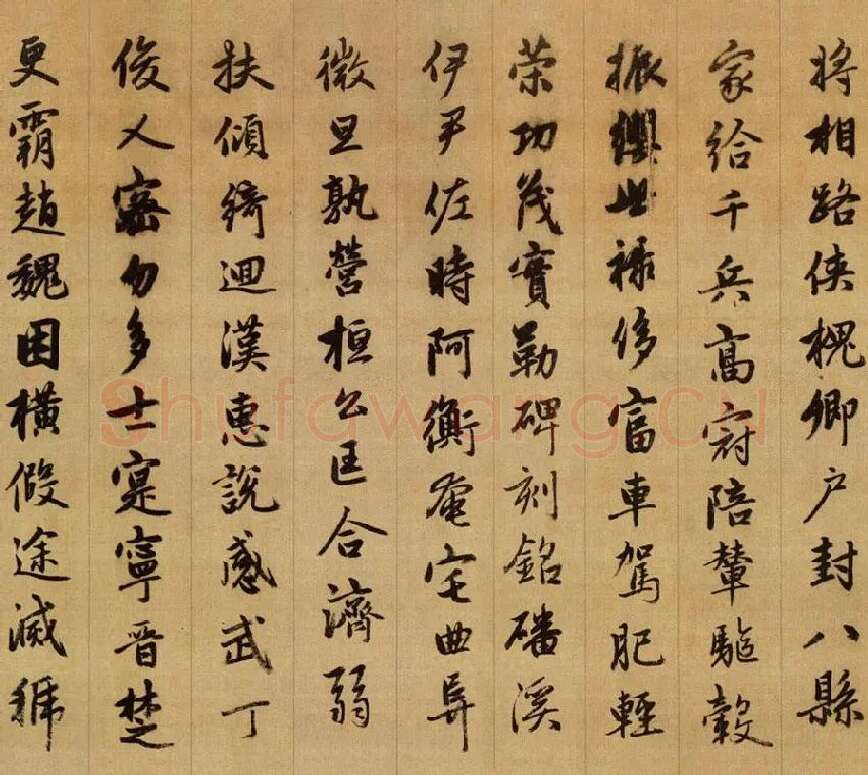 將相路俠槐卿户封八縣
家給千兵高冠陪輦驅轂
振纓世祿侈富車駕肥輕
策功茂實勒碑刻銘磻溪
伊尹佐時阿衡奄宅曲阜
微旦孰營桓公匡合濟弱
扶傾綺迴漢惠說感武丁
俊乂密勿多士寔寧晉楚
更霸趙魏困橫假途滅虢
shufawang.cn